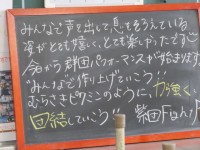 みんなで声を出して、息をそろえている
姿がとても嬉しく、とても楽しかったです
今から群団パフォーマンスが始まります
"みんなで作り上げていこう"
むらさきピクミンのように、力強く
団結していこう 紫団Fight